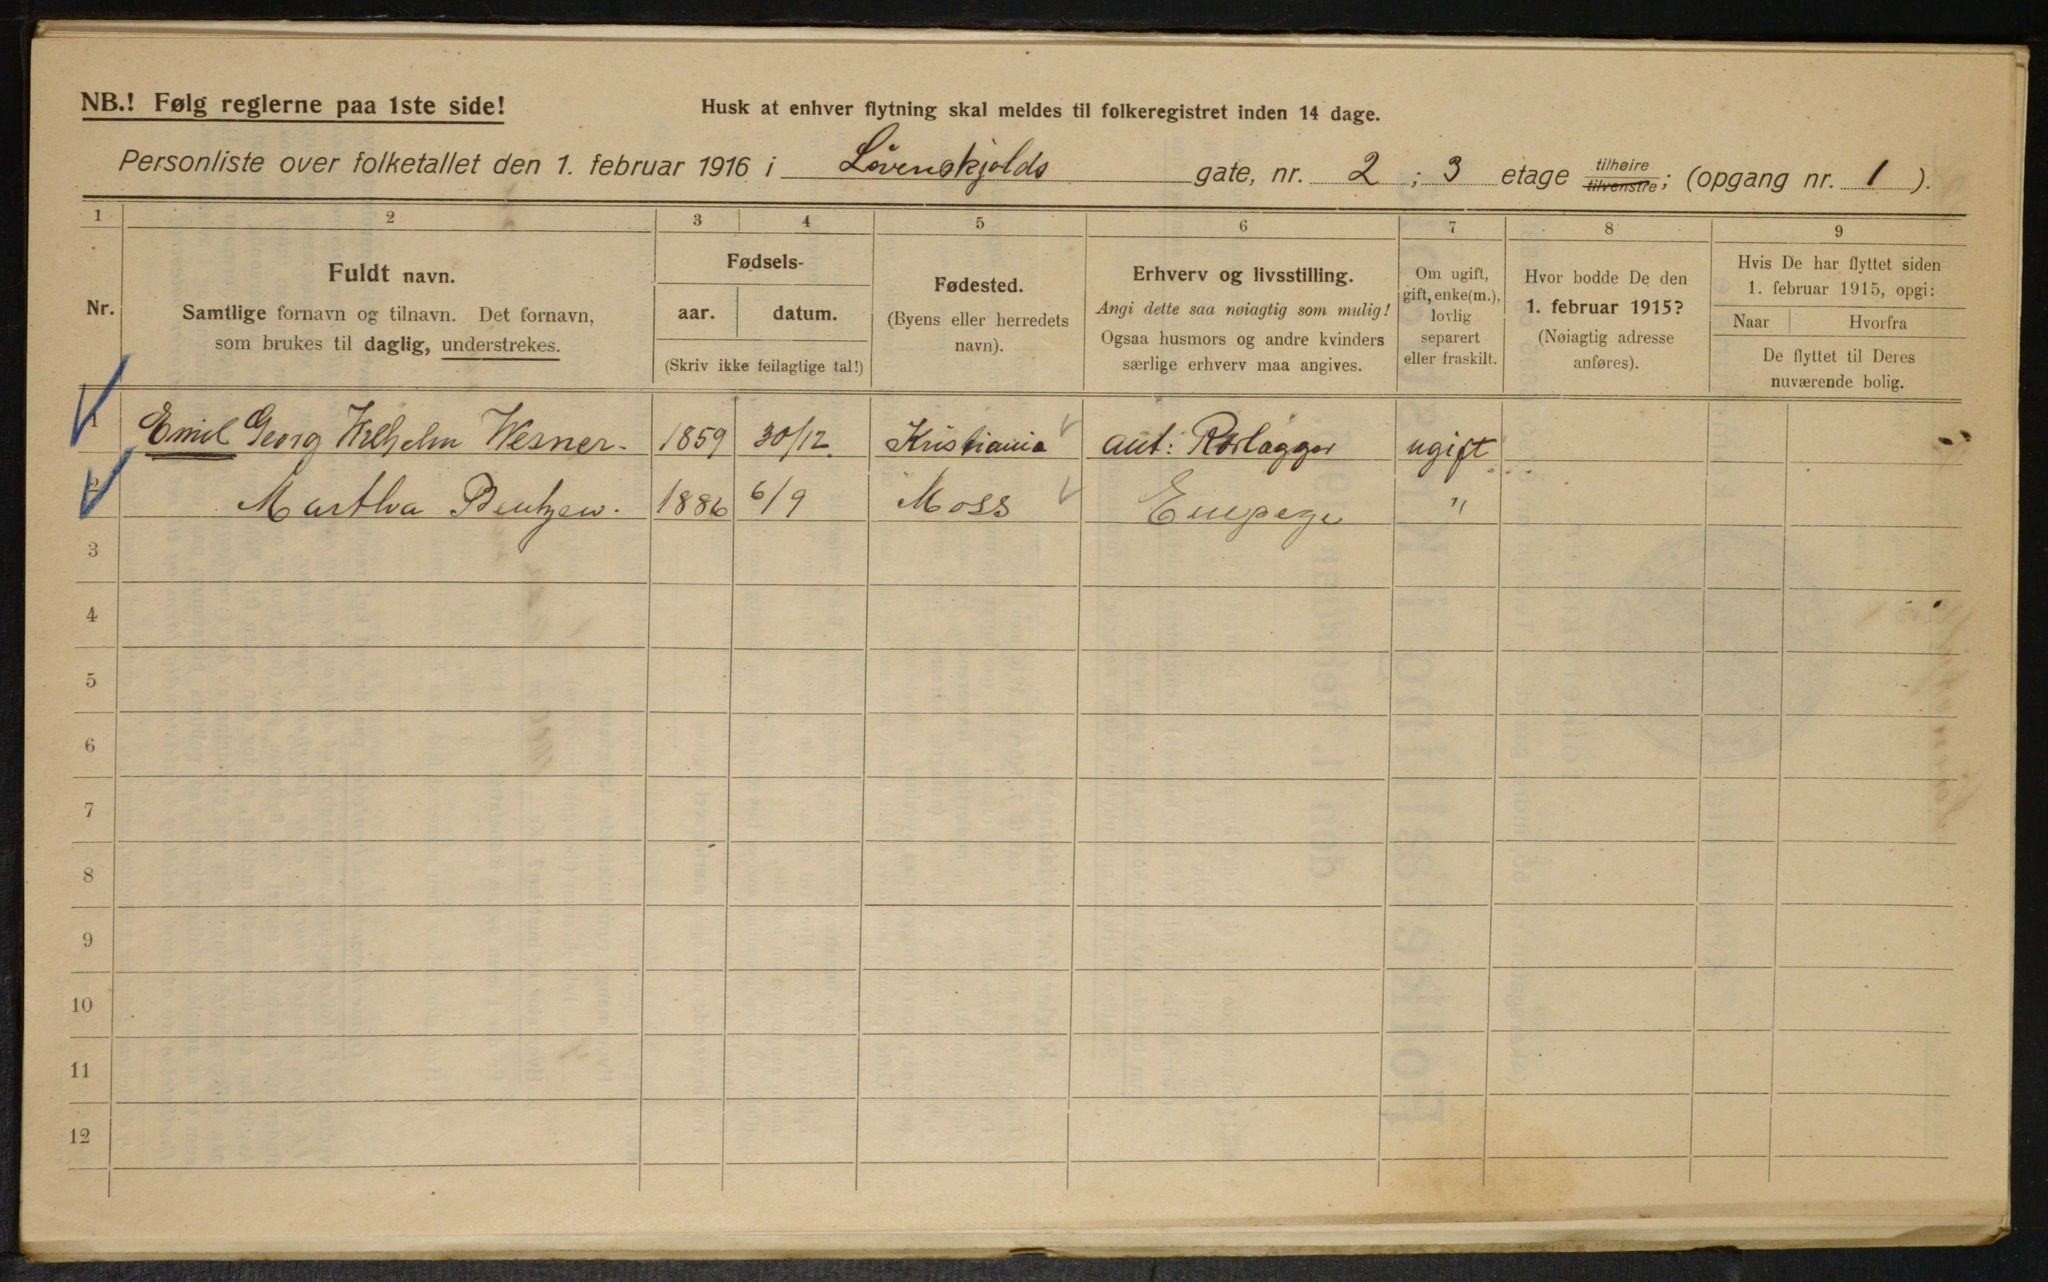 NB.! Følg reglerne paa 1ste side!
Husk at enhver flytning skal meldes til folkeregistret inden 14 dage.
Personliste over folketallet den 1. februar 1916 i Løvenskjolds gate, nr. 2 ; 3 etage tilhøire tilvenstre; (opgang nr. 1 ).
1 2 3 4 5 6 7 8 9
Nr.
Fuldt navn.
Samtlige fornavn og tilnavn. Det fornavn,
som brukes til daglig, understrekes.
Fødsels-
aar. datum.
(Skriv ikke feilagtige tal!)
Fødested.
(Byens eller herredets
navn).
Erhverv og livsstilling.
Angi dette saa nøiagtig som mulig!
Ogsaa husmors og andre kvinders
særlige erhverv maa angives.
Om ugift,
gift, enke(m.),
lovlig
separert
eller fraskilt.
Hvor bodde De den
1. februar 1915?
(Nøiagtig adresse
anføres).
Hvis De har flyttet siden
1. februar 1915, opgi:
Naar Hvorfra
De flyttet til Deres
nuværende bolig.
1 Emil Georg Wilhelm Wesner. 1859 30/12. Kristiania aut: Rørlægger ugift
2 Martha Bentzen. 1886 6/9 Moss "
3
4
5
6
7
8
9
10
11
12